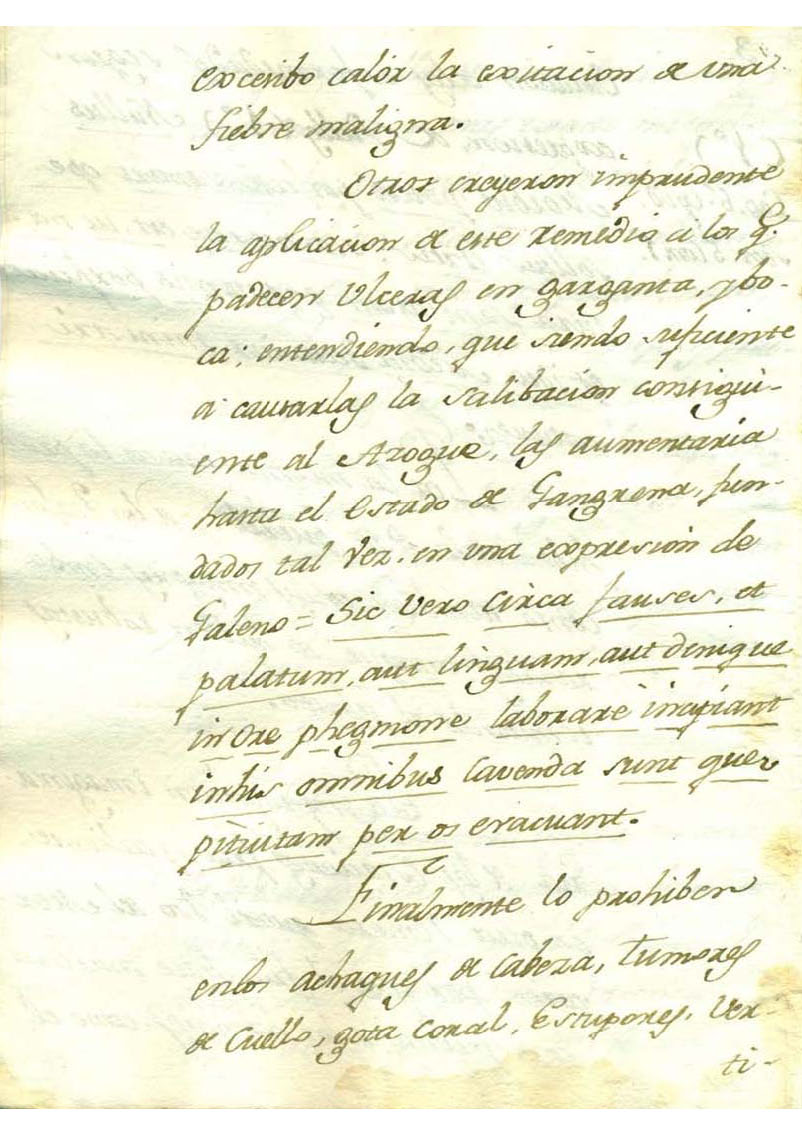 excesibo calór la exitacion de una
fiebre maligna.
Otros creyeron imprudente
la aplicacion de este remedio a los q.e
padecen Ulceras en garganta, y bo-
ca; entendiendo, que siendo suficiente
a causarlas la salibacion consigui-
ente al Azogue, las aumentaria
hasta el estado de Gangrena, fun-
dados tal vez, en una expresion de
Galeno = Sic vero circa fauses, et
palatum, aut linguam, aut denique
in ore phegmone laborare incipiant
in his omnibus cavenda sunt quez
pituitam per os evacuant.
Finalmente lo prohiben
en los achaques de Cabeza, Tumores
de Cuello, gota coral, Estupores, Ver-
ti-